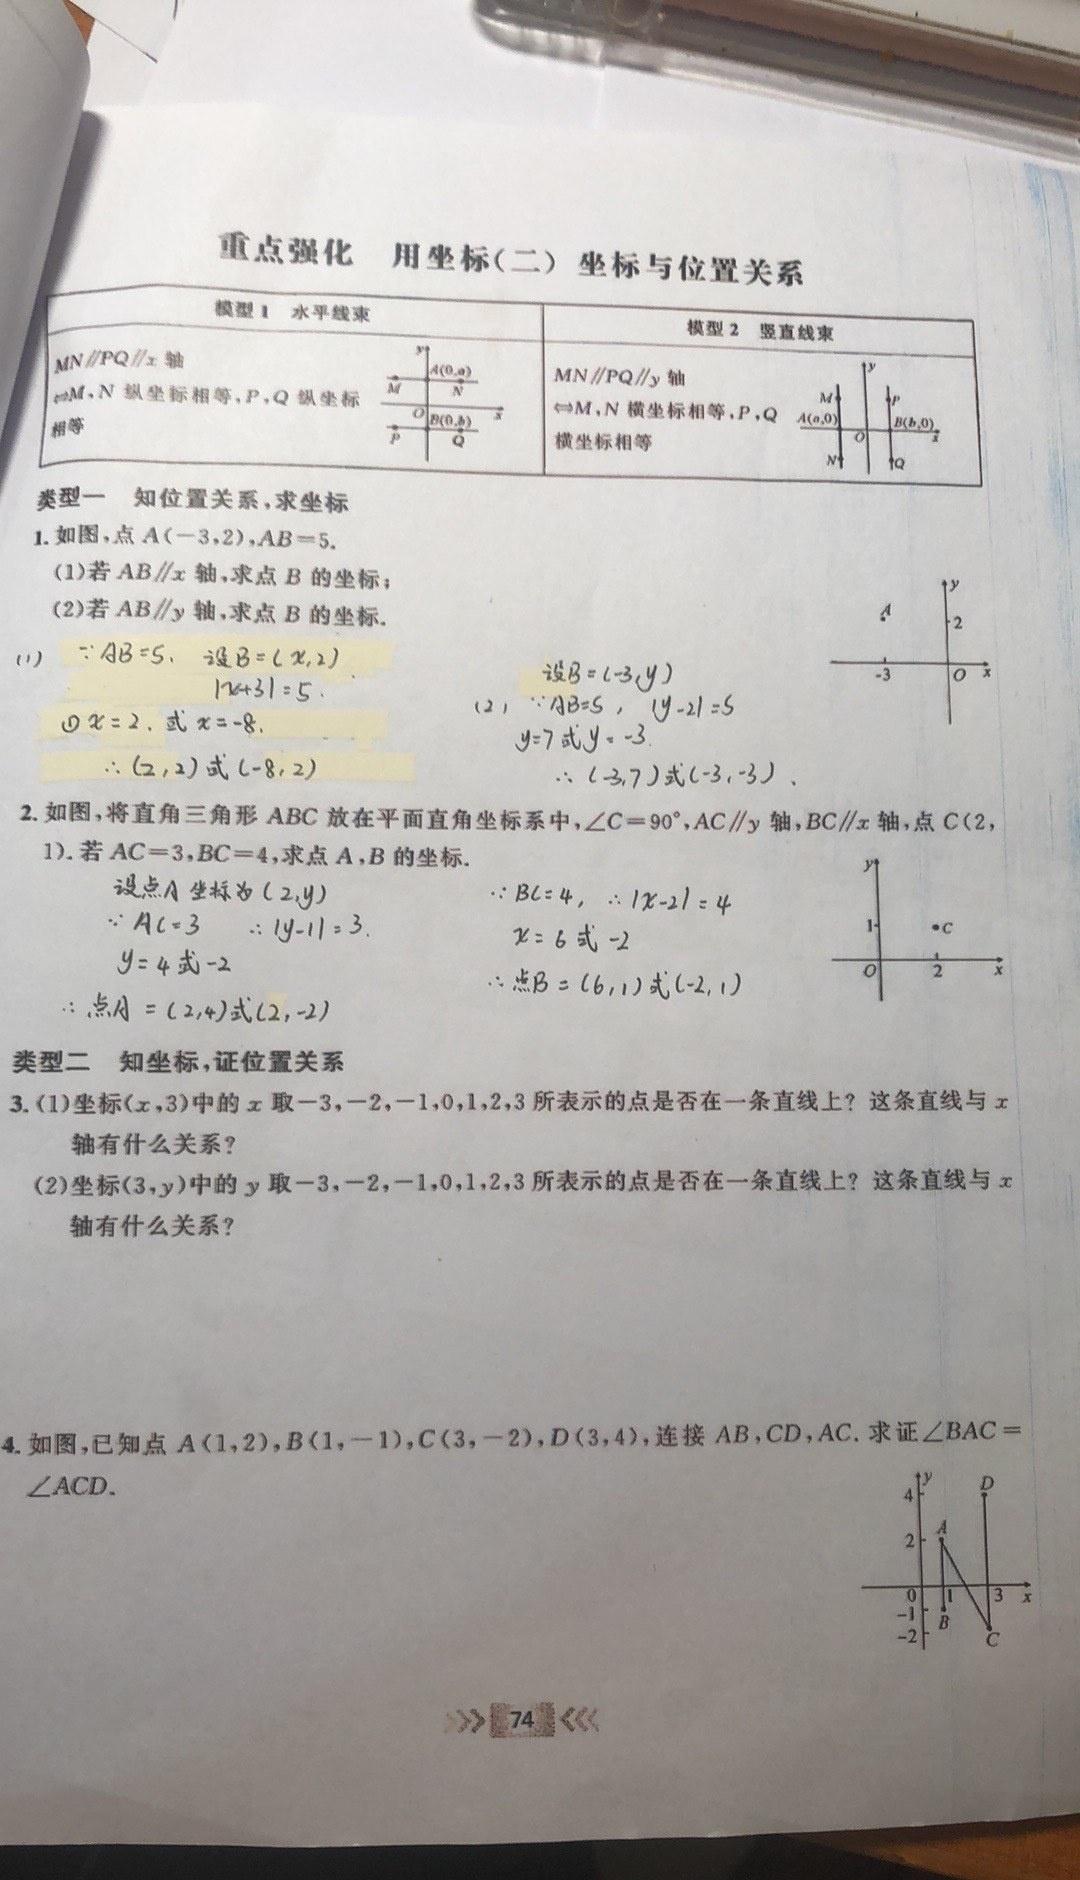 重点强化 用坐标(二) 坐标与位置关系
模型1 水平线束
模型2 竖直线束
MN∥PQ∥x 轴
⇔M,N 纵坐标相等,P,Q 纵坐标
相等
y
A(0,a)
M
N
O
x
B(0,b)
P
Q
MN∥PQ∥y 轴
⇔M,N 横坐标相等,P,Q
横坐标相等
y
M
P
A(a,0)
B(b,0)
O
x
N
Q
类型一 知位置关系,求坐标
1. 如图,点 A(-3,2),AB=5.
(1)若 AB∥x 轴,求点 B 的坐标;
(2)若 AB∥y 轴,求点 B 的坐标.
y
A
2
-3
O
x
(1) ∵AB=5. 设B=(x,2)
|x+3|=5.
① x=2. 或 x=-8.
∴(2,2)或(-8,2)
设B=(-3,y)
(2) ∵AB=5, |y-2|=5
y=7或y=-3.
∴(-3,7)或(-3,-3).
2. 如图,将直角三角形 ABC 放在平面直角坐标系中,∠C=90°,AC∥y 轴,BC∥x 轴,点 C(2,
1). 若 AC=3,BC=4,求点 A,B 的坐标.
y
1
C
O
2
x
设点A 坐标为(2,y)
∵AC=3 ∴|y-1|=3.
y=4或-2
∴点A=(2,4)或(2,-2)
∵BC=4, ∴|x-2|=4
x=6或-2
∴点B=(6,1)或(-2,1)
类型二 知坐标,证位置关系
3. (1)坐标(x,3)中的 x 取-3,-2,-1,0,1,2,3 所表示的点是否在一条直线上? 这条直线与 x
轴有什么关系?
(2)坐标(3,y)中的 y 取-3,-2,-1,0,1,2,3 所表示的点是否在一条直线上? 这条直线与 x
轴有什么关系?
4. 如图,已知点 A(1,2),B(1,-1),C(3,-2),D(3,4),连接 AB,CD,AC. 求证∠BAC=
∠ACD.
y
4
D
A
2
0
1
3
x
-1
B
-2
C
74